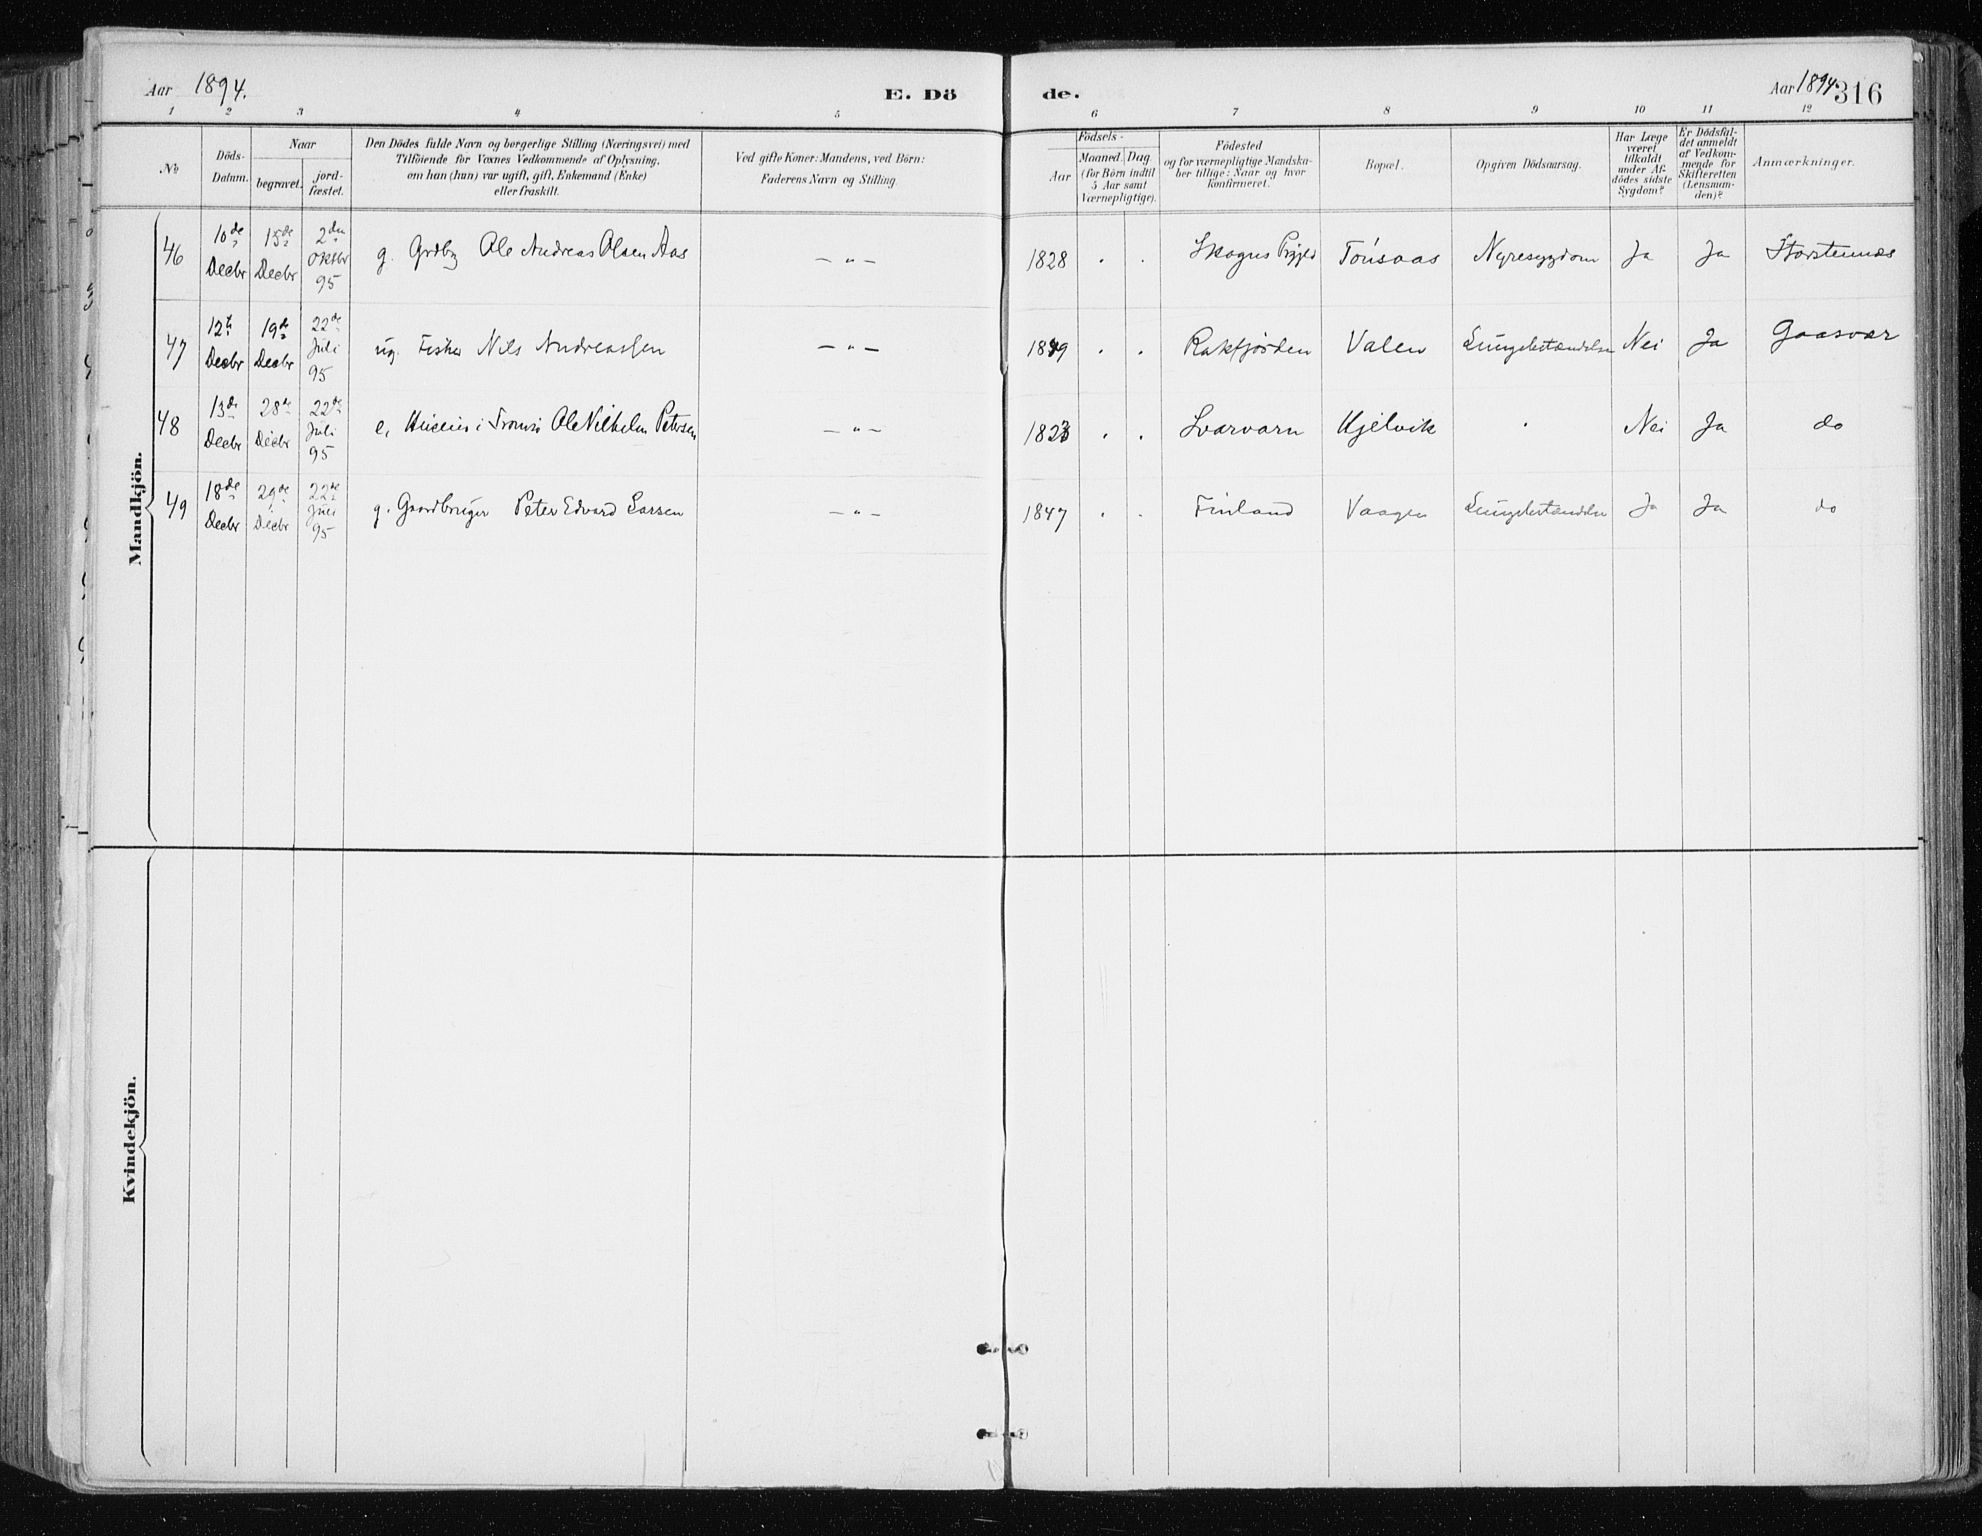 Aar 1894. E. Dö de. Aar 1894. 316
1 2 3 4 5 6 7 8 9 10 11 12
No
Döds-Datum.
Naar
begravet.
jord-fæstet.
Den Dödes fulde Navn og borgerlige Stilling (Næringsvei) med
Tilföiende for Voxnes Vedkommende af Oplysning,
om han (hun) var ugift, gift, Enkemand (Enke)
eller fraskilt.
Ved gifte Koner: Mandens, ved Börn:
Faderens Navn og Stilling.
Födsels-
Aar
Maaned. Dag
(for Börn indtil
5 Aar samt
Værnepligtige).
Födested
og for værnepligtige Mandska-
ber tillige: Naar og hvor
konfirmeret.
Bopæl.
Opgiven Dödsaarsag.
Har Læge
været
tilkaldt
under Af-
dödes sidste
Sygdom?
Er Dödsfal-
det anmeldt
af Vedkom-
mende for
Skifteretten
(Lensman-
den)?
Anmærkninger.
Mandkjön.
46 10de Decbr 15de Decbr 2den Oktbr 95 g. Grdbg Ole Andreas Olsen Aas — " — 1828 . . Tönsaas Nyresygdom Ja Ja Storstennæs
47 12te Decbr 19de Decbr 22de Juli 95 ug. Fisker Nils Andreassen — " — . . Rakfjorden Valen Lungebetændelse Nei Ja Gaasvær
48 13de Decbr 28de Decbr 22de Juli 95 e. i Tromsö Ole Vilhelm Petersen — " — . . Kjelvik . Nei Ja do
49 18de Decbr 29de Decbr 22de Juli 95 g. Gaardbruger Peter Edvard Larsen — " — 1847 . . Finland Vaagen Lungebetændelse Ja Ja do
Kvindekjön.